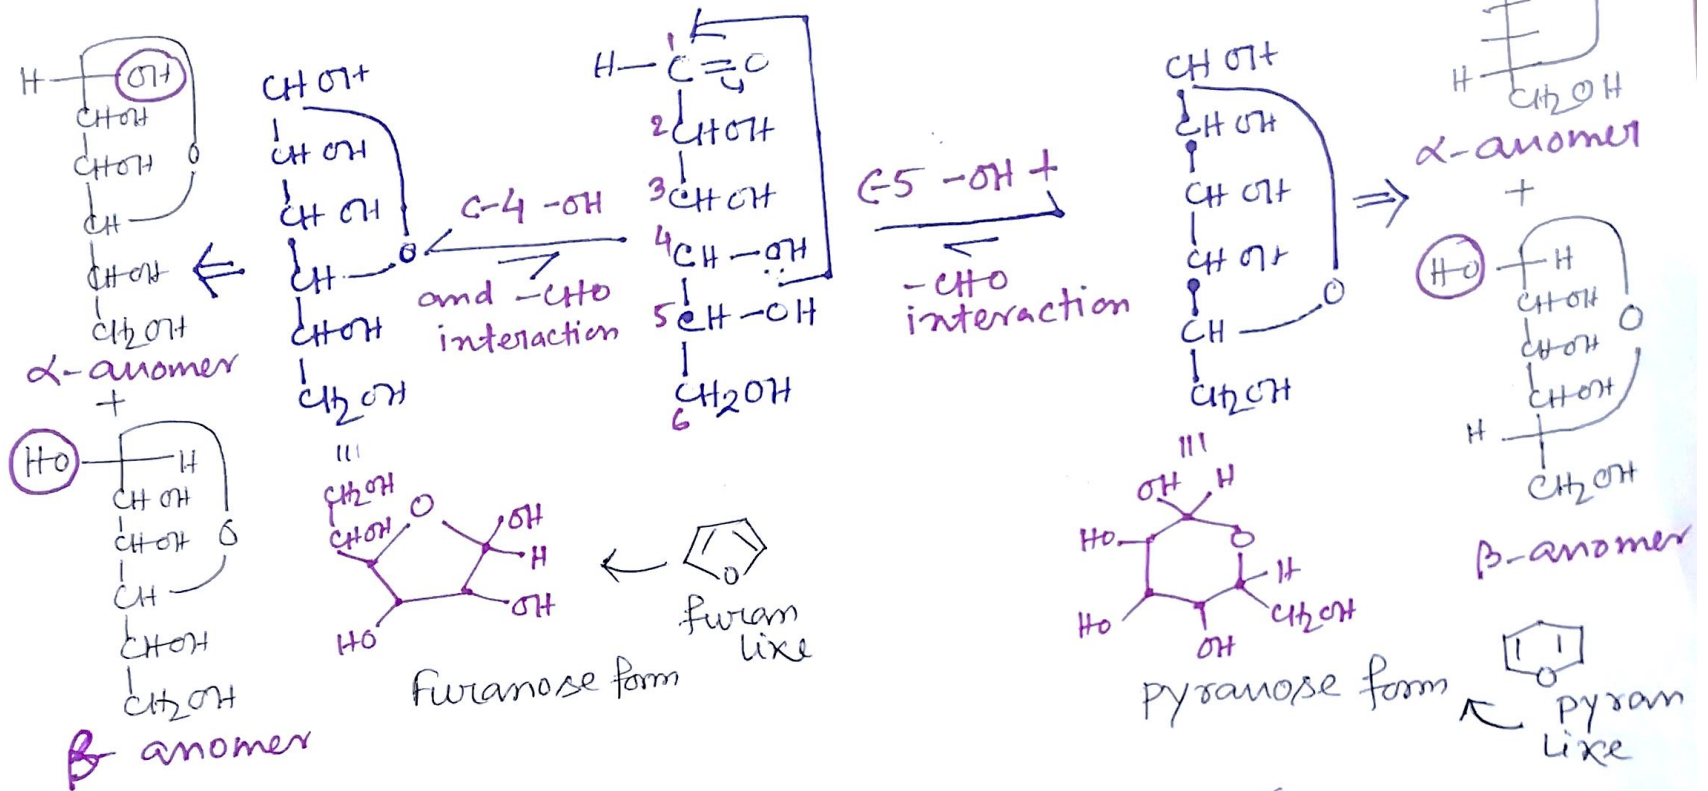 H
OH
CHOH
CHOH
O
CH
CHOH
CH2OH
α-anomer
+
HO
H
CHOH
CHOH
O
CH
CHOH
CH2OH
β-anomer
CHOH
CHOH
CHOH
O
CH
CHOH
CH2OH
III
CH2OH
CHOH
O
OH
H
OH
HO
Furanose form
C-4 -OH
and -CHO
interaction
O
furan
like
1
H-C=O
2 CHOH
3 CHOH
4 CH-OH
5 CH-OH
CH2OH
6
C-5 -OH +
-CHO
interaction
CHOH
CHOH
CHOH
CHOH
O
CH
CH2OH
III
OH H
HO
O
H
HO
CH2OH
OH
pyranose form
O
pyran
like
H
CH2OH
α-anomer
+
HO
H
CHOH
O
CHOH
CHOH
H
CH2OH
β-anomer